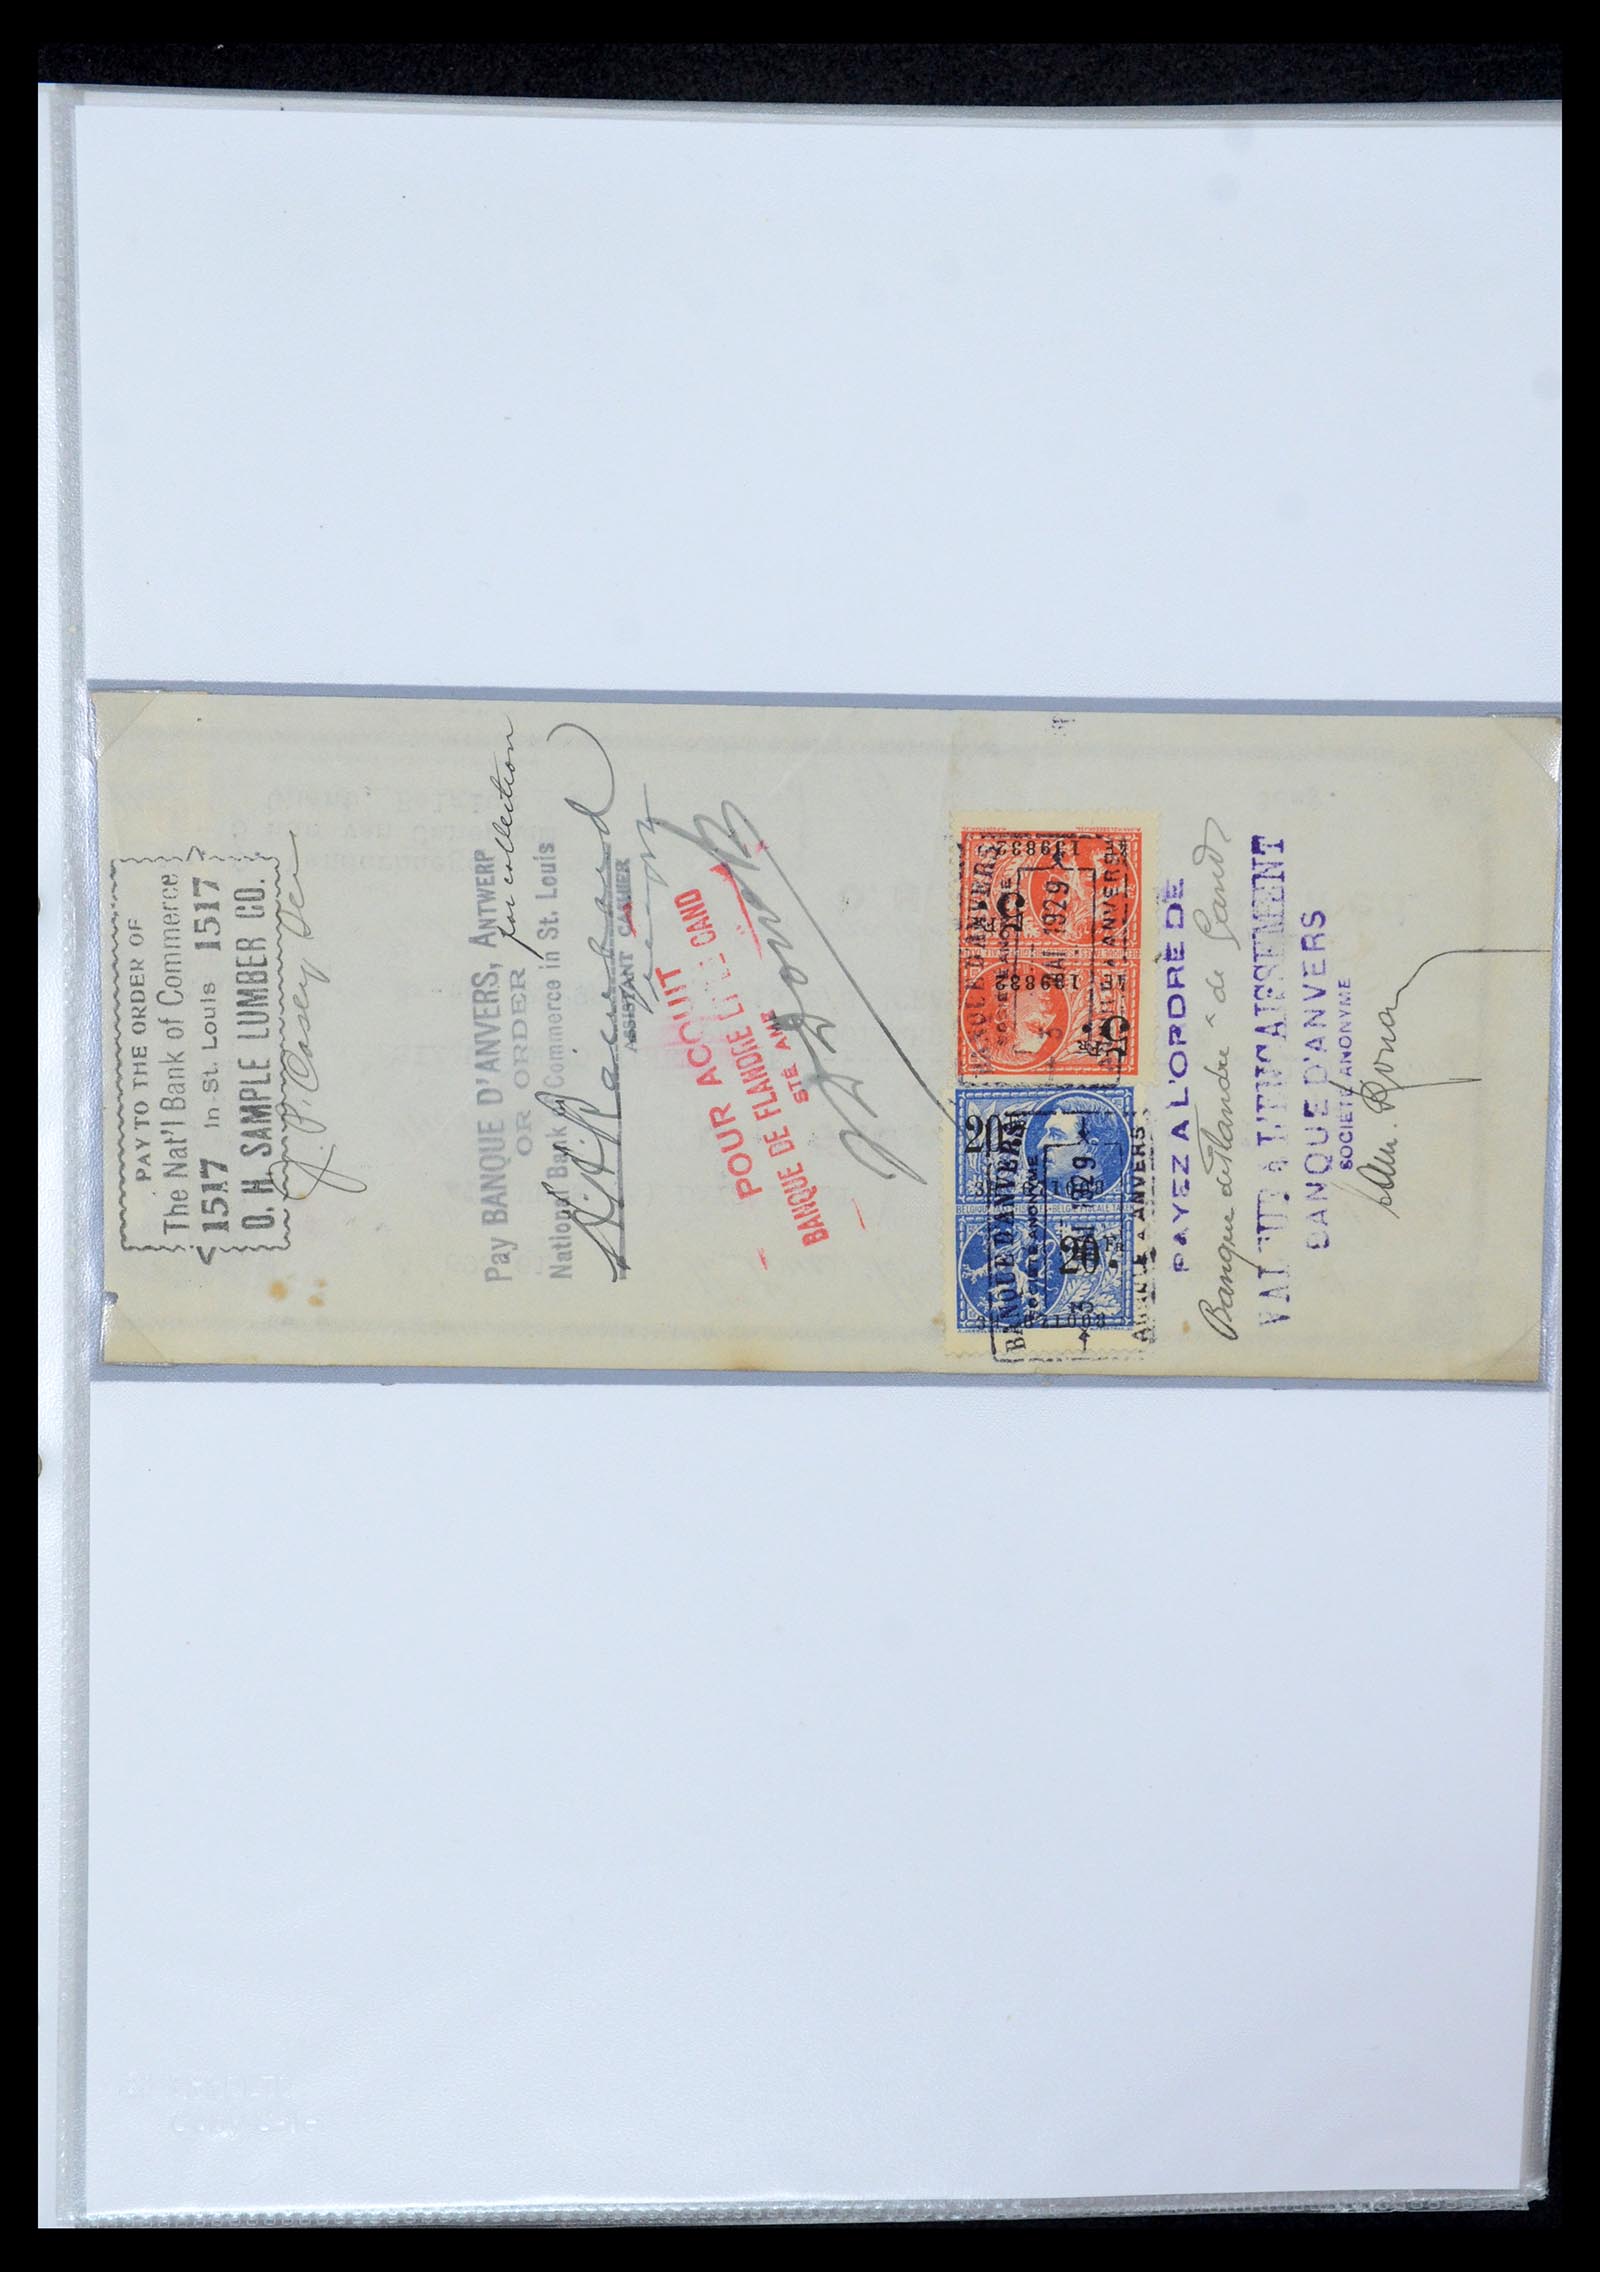 PAY TO THE ORDER OF
The Nat'l Bank of Commerce
1517 In St. Louis 1517
O. H. SAMPLE LUMBER CO.
J. P. Casey
Pay BANQUE D'ANVERS, ANTWERP
for collection
OR ORDER
National Bank of Commerce in St. Louis
ASSISTANT CASHIER
POUR ACQUIT
BANQUE DE FLANDRE GAND
STÉ AME
BANQUE D'ANVERS
SOCIÉTÉ ANONYME
3 MAI 1929
A ANVERS
5
5
BANQUE D'ANVERS
SOCIÉTÉ ANONYME
3 1929
A ANVERS
20
20 Fr
PAYEZ A L'ORDRE DE
Banque de Flandre à de Gand
VALEUR A L'ENCAISSEMENT
BANQUE D'ANVERS
SOCIÉTÉ ANONYME